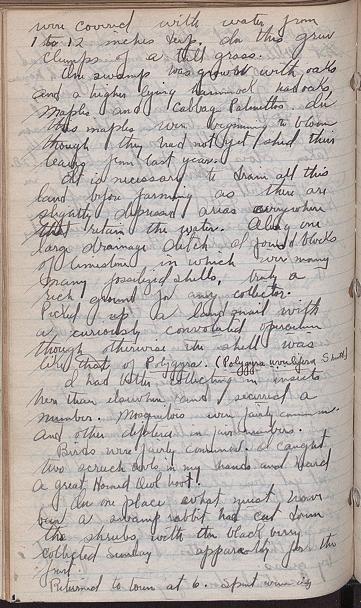 were covered with water from
1 to 12 inches deep. In this grew
clumps of a tall grass.
One swamp was grown with oaks
and a higher lying hammock had oaks,
maples and Cabbage Palmettos. In
this maples were beginning to bloom
though they had not yet shed their
leaves from last year.
It is necessary to drain all this
land before farming as there are
slightly depressed areas everywhere
that retain the water. Along one
large drainage ditch I found blocks
of limestone in which were many
many fossilized shells, truly a
rich ground for any collector.
Picked up a land snail with
a curiously convoluted operculum
though otherwise the shell was
like that of Polygyra. (Polygyra uvulifera Shutt)
I had better collecting in insects
here than elsewhere and I secured a
number. Mosquitoes were fairly common.
and other diptera in fair numbers.
Birds were fairly common. I caught
two screech owls in my hands and heard
a great Horned Owl hoot.
In one place what must have
been a swamp rabbit had cut down
the shrubs, with the black berry
collected Sunday apparently for the
fruit.
Returned to town at 6. Spent evening